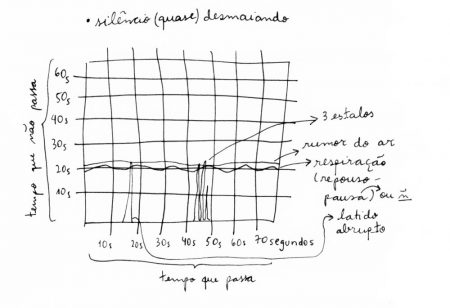 • silêncio (quase) desmaiando
tempo que não passa
60s
50s
40s
30s
20s
10s
→ 3 estalos
→ rumor do ar
→ respiração
(repouso-
pausa) ou ñ
→ latido
abrupto
10s 20s 30s 40s 50s 60s 70segundos
tempo que passa